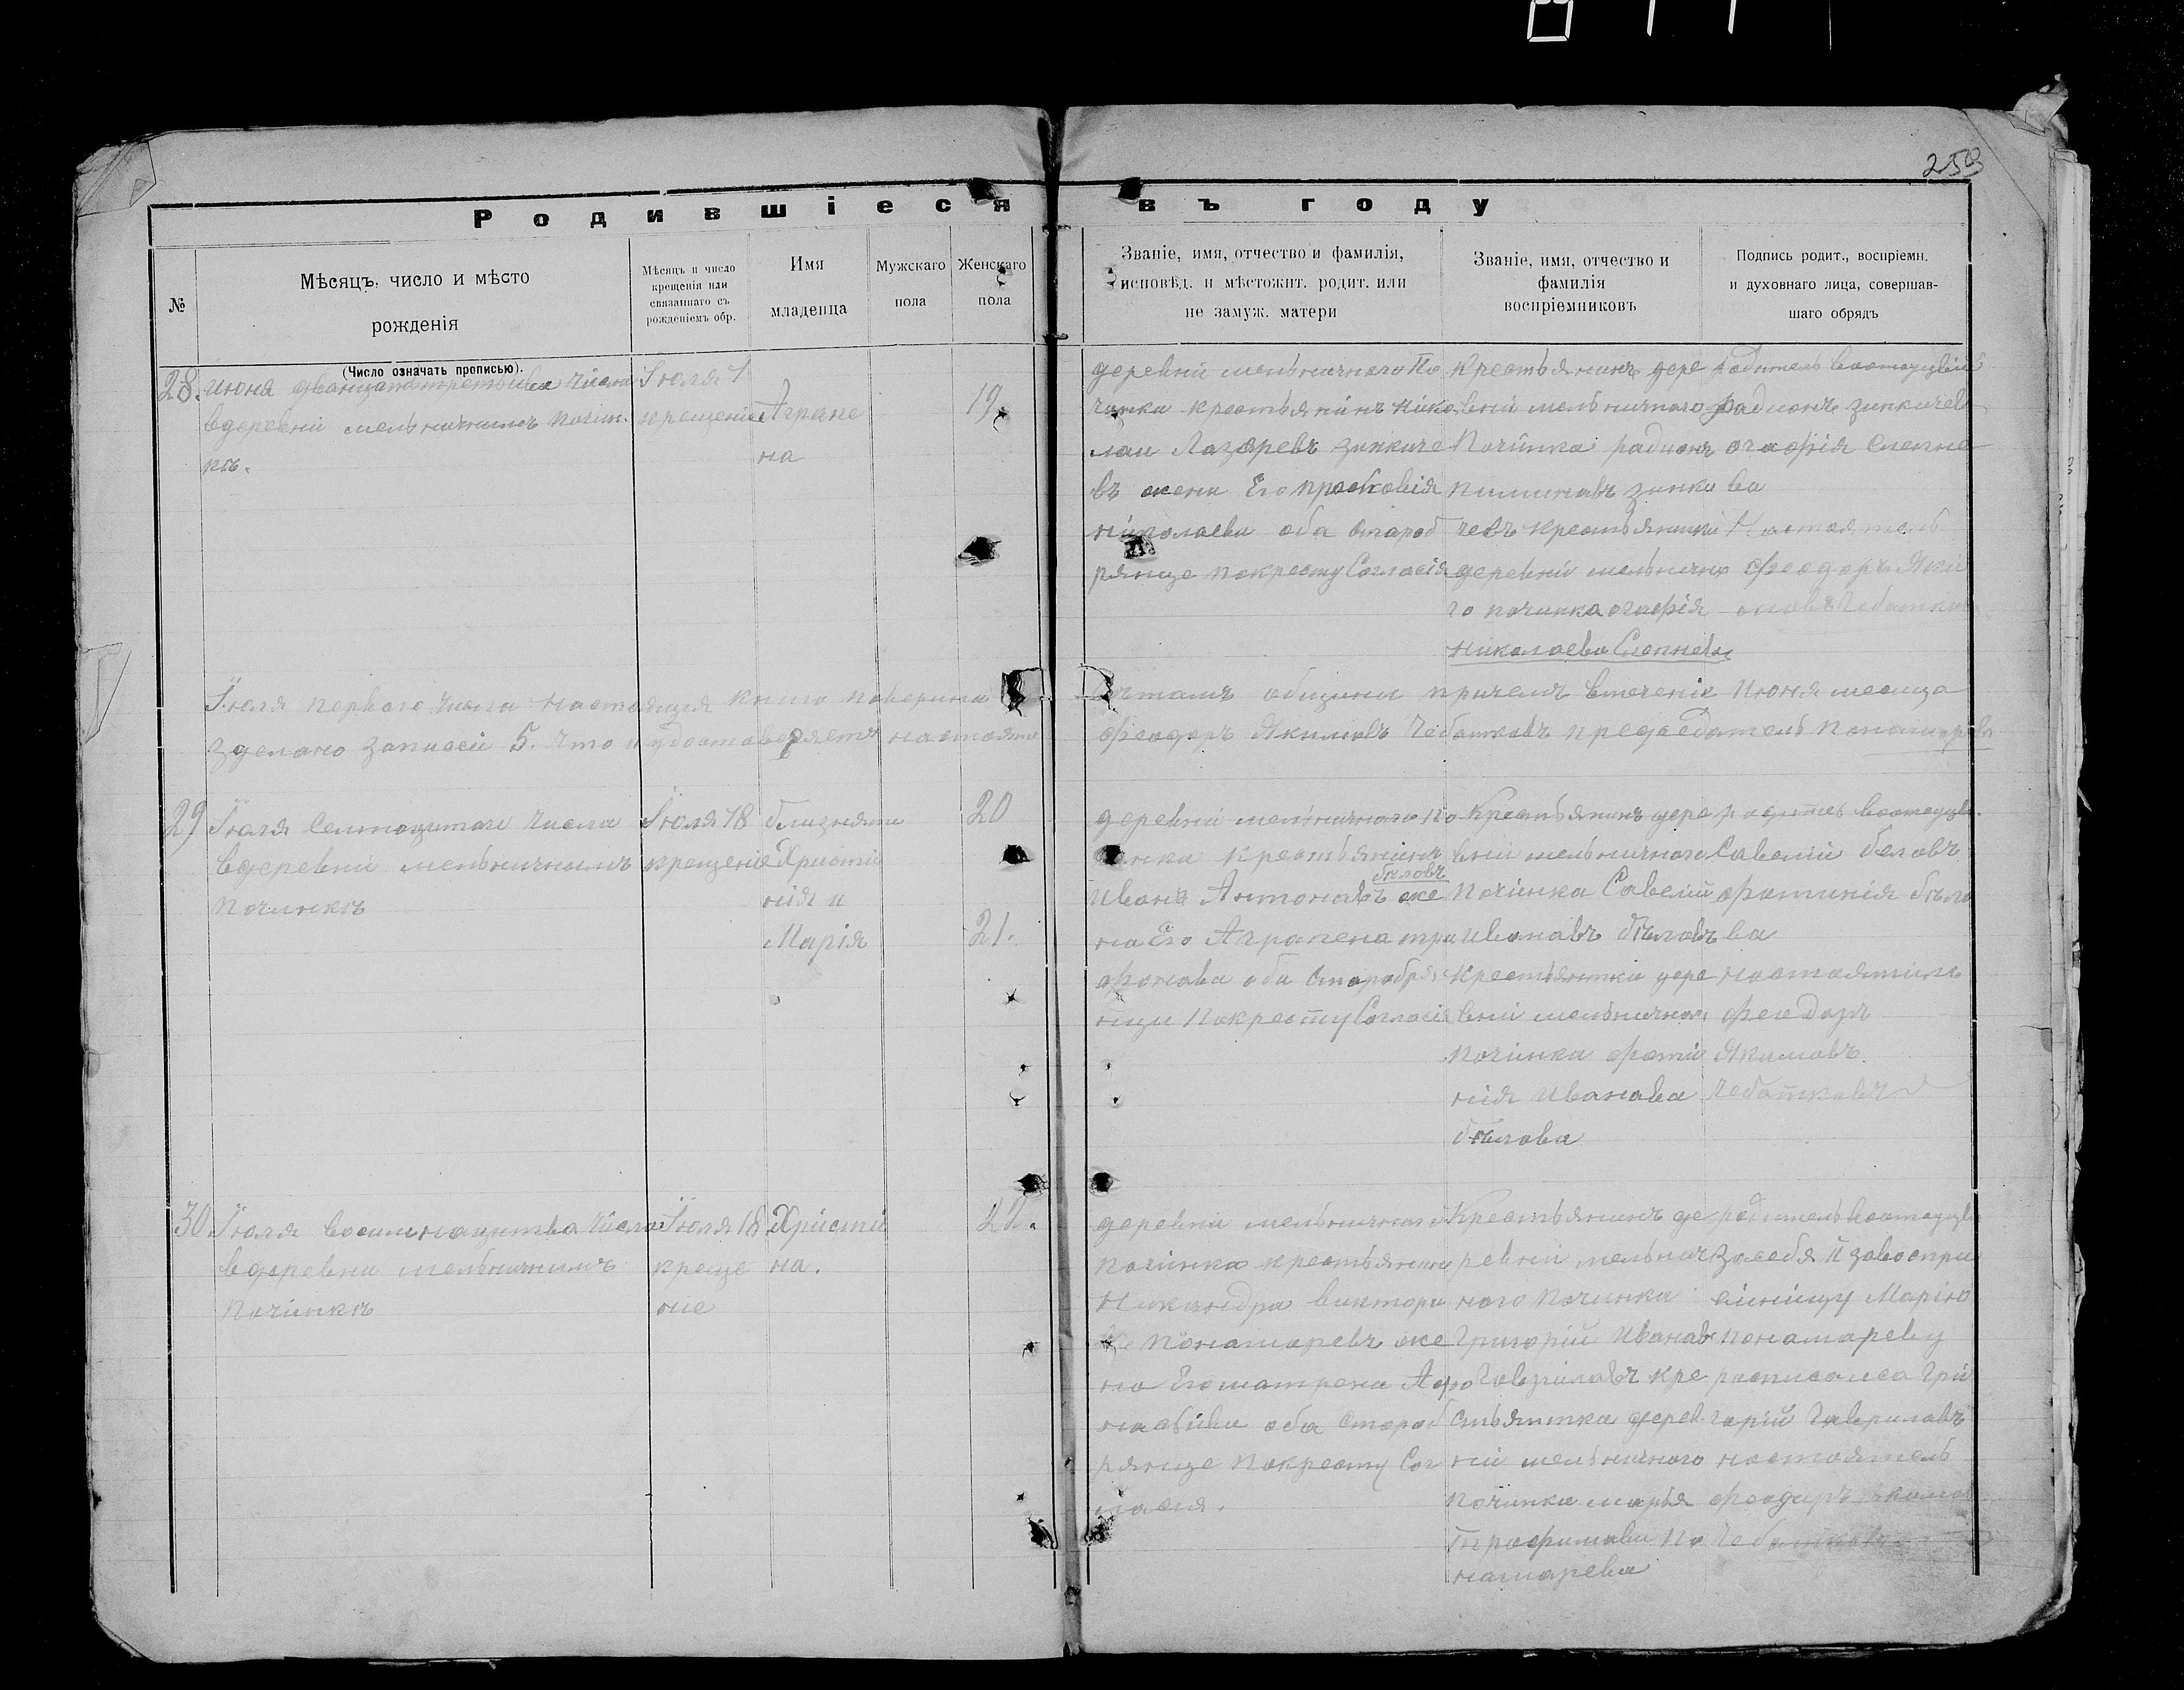 259
Родившіеся въ году
№
Мѣсяцъ, число и мѣсто
рожденія
(Число означать прописью).
Мѣсяцъ и число
крещенія или
связаннаго съ
рожденіемъ обр.
Имя
младенца
Мужскаго
пола
Женскаго
пола
Званіе, имя, отчество и фамилія,
исповѣд. и мѣстожит. родит. или
не замуж. матери
Званіе, имя, отчество и
фамилія
воспріемниковъ
Подпись родит., воспріемн.
и духовнаго лица, совершав-
шаго обрядъ
28.
июня числа
вдеревни мельничнымъ почин.
кѣ.
Іюля 1
крещеніе
Аграпе
на
19.
деревни мельничного По
чинка крестьянинъ Нико
лаи Лазоревъ зинкиче
въ жена Его просковія
николаева оба староб
рянце покресту Согласія
Крестьянинъ дере
вни мельничного
Почінка радионъ
зинки
чевъ крестьянки
деревни мельнично
го починка огафія
николаева Слепнева
радионъ зинкичев
огафія слепне
ва
Настоятель
феодоръ Яки
Іюля первого числа настоящея книга поверина
общины причемъ втечение Июня месица
зделано записей 5. что и удостоверяетъ
феодоръ Якимовъ Чеботковъ председатель
29
Іюля Семнацатаго числа
вдеревни мельничнымъ
починкѣ
Іюля 18
крещеніе
близняты
Христи
нія и
Марія
20
21.
деревни мельничного по
чинка крестьянинъ
бѣловъ
Иванъ Антонавъ же
на Его Аграпена три
фонава оба старобря
нци покресту Согласія
Крестьянинъ дере
вни мельничного
почінка Савелий
иванавъ бѣловъ
крестьянтка дере
вни мельничного
почінка фоти
ния Иванава
бѣлова
Савелій беловъ
фотинія бѣло
ва
настоятиль
феодоръ
Якимовъ.
Чеботковъ
30
Іюля восимнацатва числа
вдеревни мельничнимъ
починкѣ
Іюля 18
креще
ніе
Христи
на.
22.
деревни мельничного
починка крестьянин
Никандра виктори
Понамаревъ же
на Его матрена Афо
насьива оба староб
рянце покресту Сог
ласия.
Крестьянинъ де
ревни мельнич
ного починка
Григорій Иванав
Говриловъ кре
стьянтка дерев
ни мельничного
починка марья
трофимава По
намарева
засебя и завоспри
еиницу Марію
понамареву
росписался Гри
горій Гаврилавъ
настоятель
феодоръ